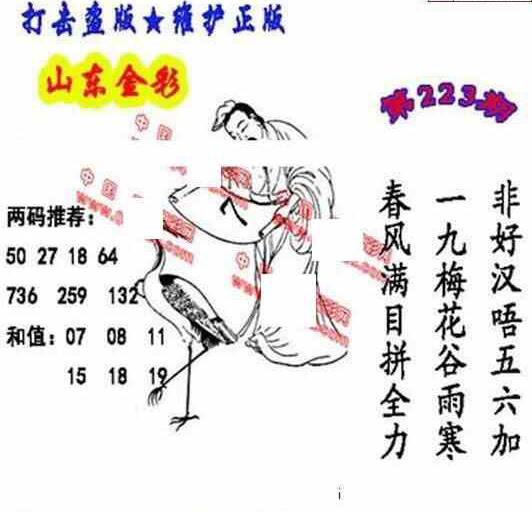 打击盗版★维护正版
山东金彩
第223期
两码推荐：
50 27 18 64
736 259 132
和值：07 08 11
15 18 19
非好汉唔五六加
一九梅花谷雨寒
春风满目拼全力